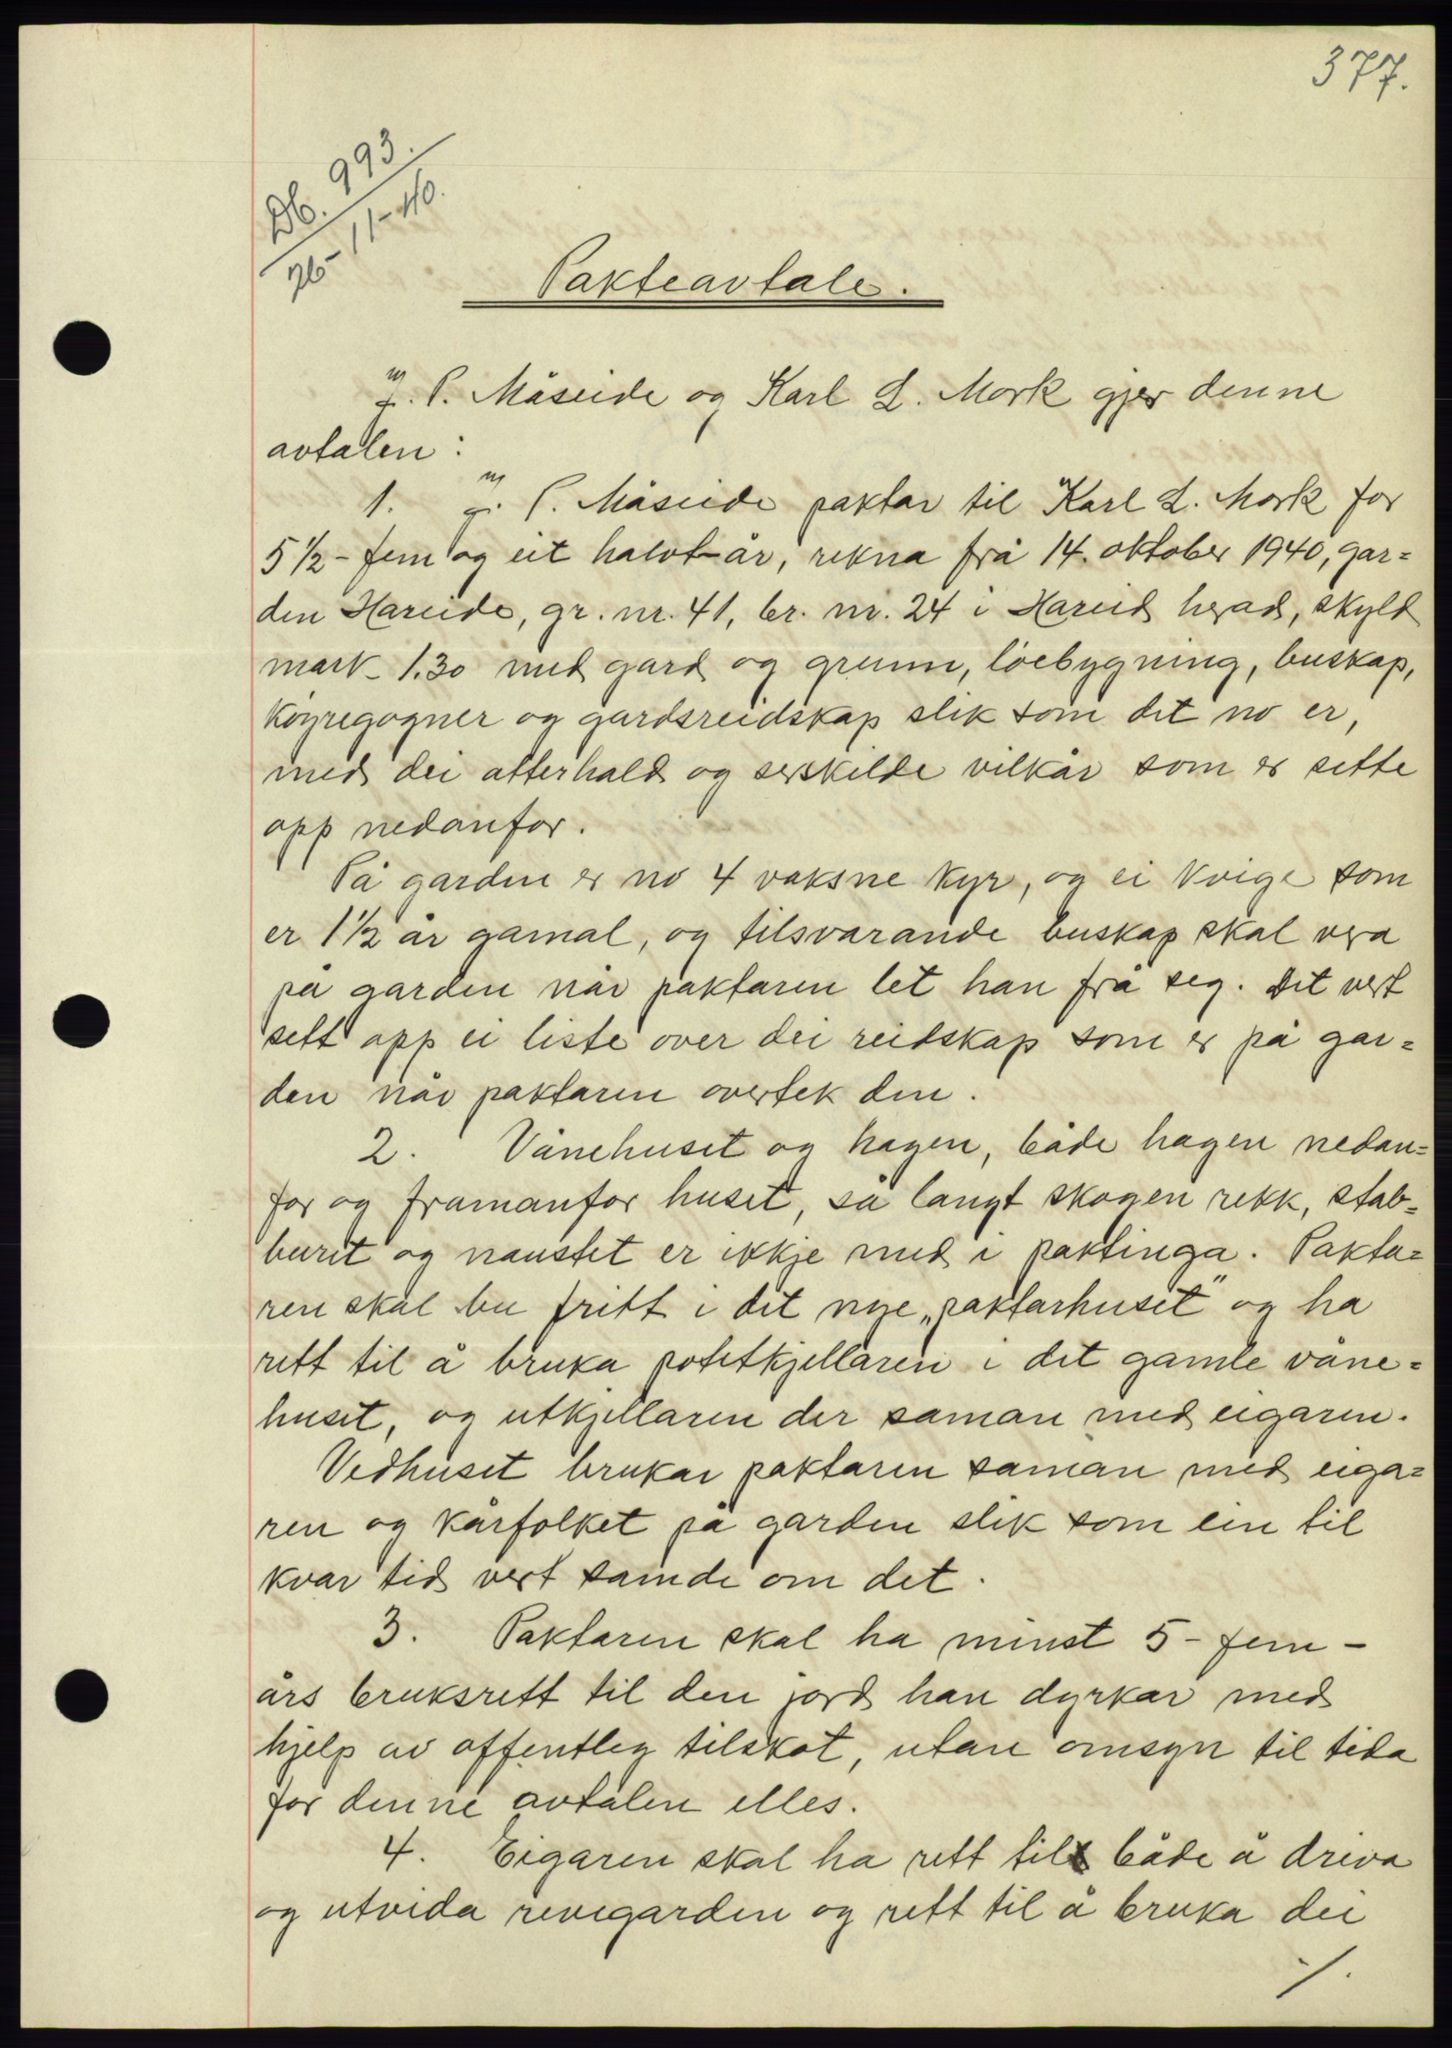 377.
Db. 993.
26-11-40.
Pakteavtale.
J. P. Måseide og Karl L. Mork gjer denne
avtalen:
1. J. P. Måseide paktar til Karl L. Mork for
5 1/2 - fem og eit halvt-år, rekna frå 14. oktober 1940, gar=
den Hareide, gr. nr. 41, br. nr. 24 i Hareid herad, skyld
mark 1.30 med gard og grunn, löebygning, buskap,
köyregogner og gardsreidskap slik som det no er,
med dei atterhald og serskilde vilkår som er sette
opp nedanfor.
På garden er no 4 vaksne kyr, og ei kvige som
er 1 1/2 år gamal, og tilsvarande buskap skal vera
på garden når paktaren let han frå seg. Det vert
sett opp ei liste over dei reidskap som er på gar=
den når paktaren overtek den.
2. Vånehuset og hagen, både hagen nedan=
for og framanfor huset, så langt skogen rekk, stab=
buret og naustet er ikkje med i paktinga. Pakta=
ren skal bu fritt i det nye „paktarhuset" og ha
rett til å bruka potetkjellaren i det gamle våne=
huset, og utkjellaren der saman med eigaren.
Vedhuset brukar paktaren saman med eiga=
ren og kårfolket på garden slik som ein til
kvar tid vert samde om det.
3. Paktaren skal ha minst 5 - fem -
års bruksrett til den jord han dyrkar med
hjelp av offentleg tilskot, utan omsyn til tida
for denne avtalen elles.
4. Eigaren skal ha rett til både å driva
og utvida revegarden og rett til å bruka dei
/.